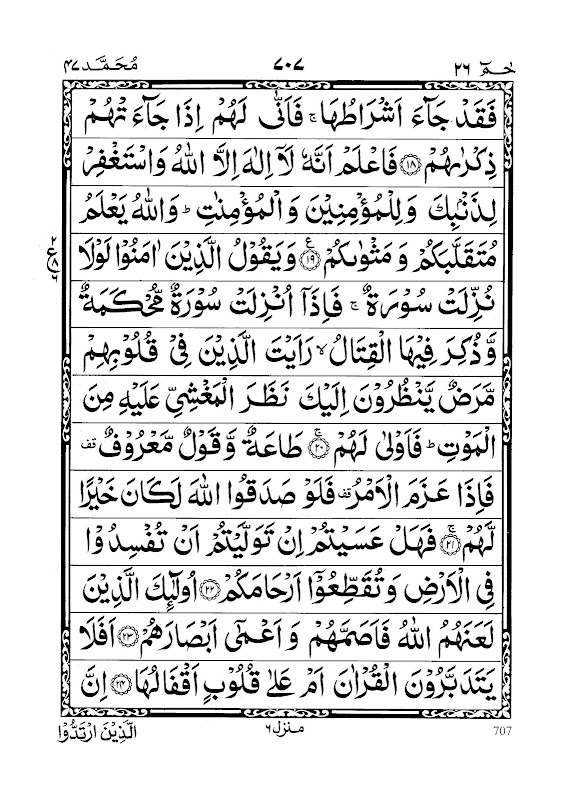 حٰمٓ ۲۶ ۷۰۷ مُحَمَّد ۴۷
فَقَدۡ جَآءَ اَشۡرَاطُهَا ۚ فَاَنّٰى لَهُمۡ اِذَا جَآءَ تۡهُمۡ
ذِكۡرٰٮهُمۡ ﴿۱۸﴾ فَاعۡلَمۡ اَنَّهٗ لَاۤ اِلٰهَ اِلَّا اللّٰهُ وَاسۡتَغۡفِرۡ
لِذَنۡۢبِكَ وَلِلۡمُؤۡمِنِيۡنَ وَالۡمُؤۡمِنٰتِ ؕ وَاللّٰهُ يَعۡلَمُ
مُتَقَلَّبَكُمۡ وَ مَثۡوٰٮكُمۡ ﴿۱۹﴾ وَيَقُوۡلُ الَّذِيۡنَ اٰمَنُوۡا لَوۡلَا
نُزِّلَتۡ سُوۡرَةٌ ۚ فَاِذَاۤ اُنۡزِلَتۡ سُوۡرَةٌ مُّحۡكَمَةٌ
وَّذُكِرَ فِيۡهَا الۡقِتَالُ ۙ رَاَيۡتَ الَّذِيۡنَ فِىۡ قُلُوۡبِهِمۡ
مَّرَضٌ يَّنۡظُرُوۡنَ اِلَيۡكَ نَظَرَ الۡمَغۡشِىِّ عَلَيۡهِ مِنَ
الۡمَوۡتِ ؕ فَاَوۡلٰى لَهُمۡ ۚ ﴿۲۰﴾ طَاعَةٌ وَّقَوۡلٌ مَّعۡرُوۡفٌ قف
فَاِذَا عَزَمَ الۡاَمۡرُ قف فَلَوۡ صَدَقُوا اللّٰهَ لَكَانَ خَيۡرًا
لَّهُمۡ ۚ ﴿۲۱﴾ فَهَلۡ عَسَيۡتُمۡ اِنۡ تَوَلَّيۡتُمۡ اَنۡ تُفۡسِدُوۡا
فِى الۡاَرۡضِ وَتُقَطِّعُوۡۤا اَرۡحَامَكُمۡ ﴿۲۲﴾ اُولٰٓٮِٕكَ الَّذِيۡنَ
لَعَنَهُمُ اللّٰهُ فَاَصَمَّهُمۡ وَاَعۡمٰٓى اَبۡصَارَهُمۡ ﴿۲۳﴾ اَفَلَا
يَتَدَبَّرُوۡنَ الۡقُرۡاٰنَ اَمۡ عَلٰى قُلُوۡبٍ اَقۡفَالُهَا ﴿۲۴﴾ اِنَّ
ع ۲ ۸ ۶
707 منزل ۶ الَّذِيۡنَ ارۡتَدُّوۡا